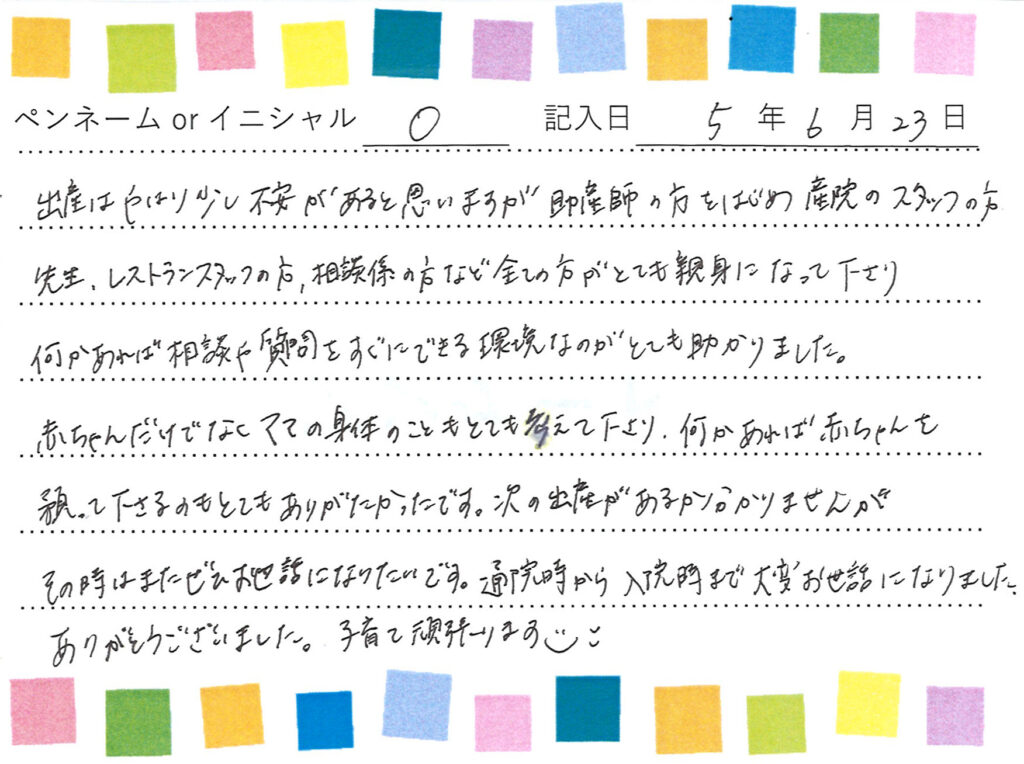 ペンネーム or イニシャル O 記入日 5 年 6 月 23 日
出産はやはり少し不安があると思いますが助産師の方をはじめ産院のスタッフの方
先生、レストランスタッフの方、相談係の方など全ての方がとても親身になって下さり
何かあれば相談や質問をすぐにできる環境なのがとても助かりました。
赤ちゃんだけでなくママの身体のこともとても考えて下さり、何かあれば赤ちゃんを
預って下さるのもとてもありがたかったです。次の出産があるか分かりませんが
その時はまたぜひお世話になりたいです。通院時から入院時まで大変お世話になりました。
ありがとうございました。子育て頑張ります